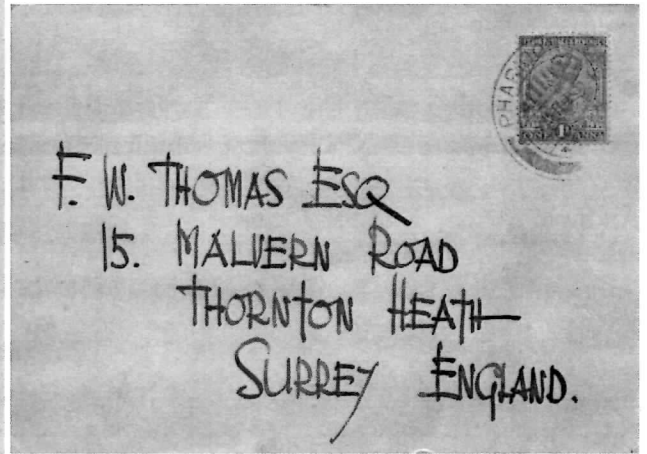 PHARI
F. W. THOMAS ESQ
15. MALVERN ROAD
THORNTON HEATH
SURREY ENGLAND.